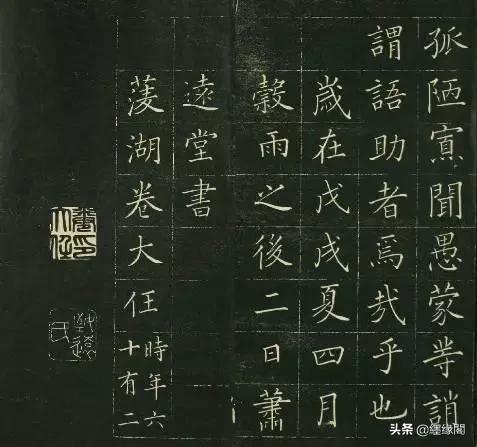 孤陋寡聞愚蒙䓁誚
謂語助者焉哉乎也
歲在戊戌夏四月
穀雨之後二日蕭
遠堂書
蔆湖卷大任時年六十有二
头条